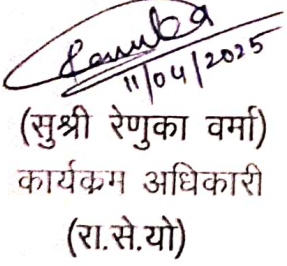 Renuka
11/04/2025
(सुश्री रेणुका वर्मा)
कार्यक्रम अधिकारी
(रा.से.यो)